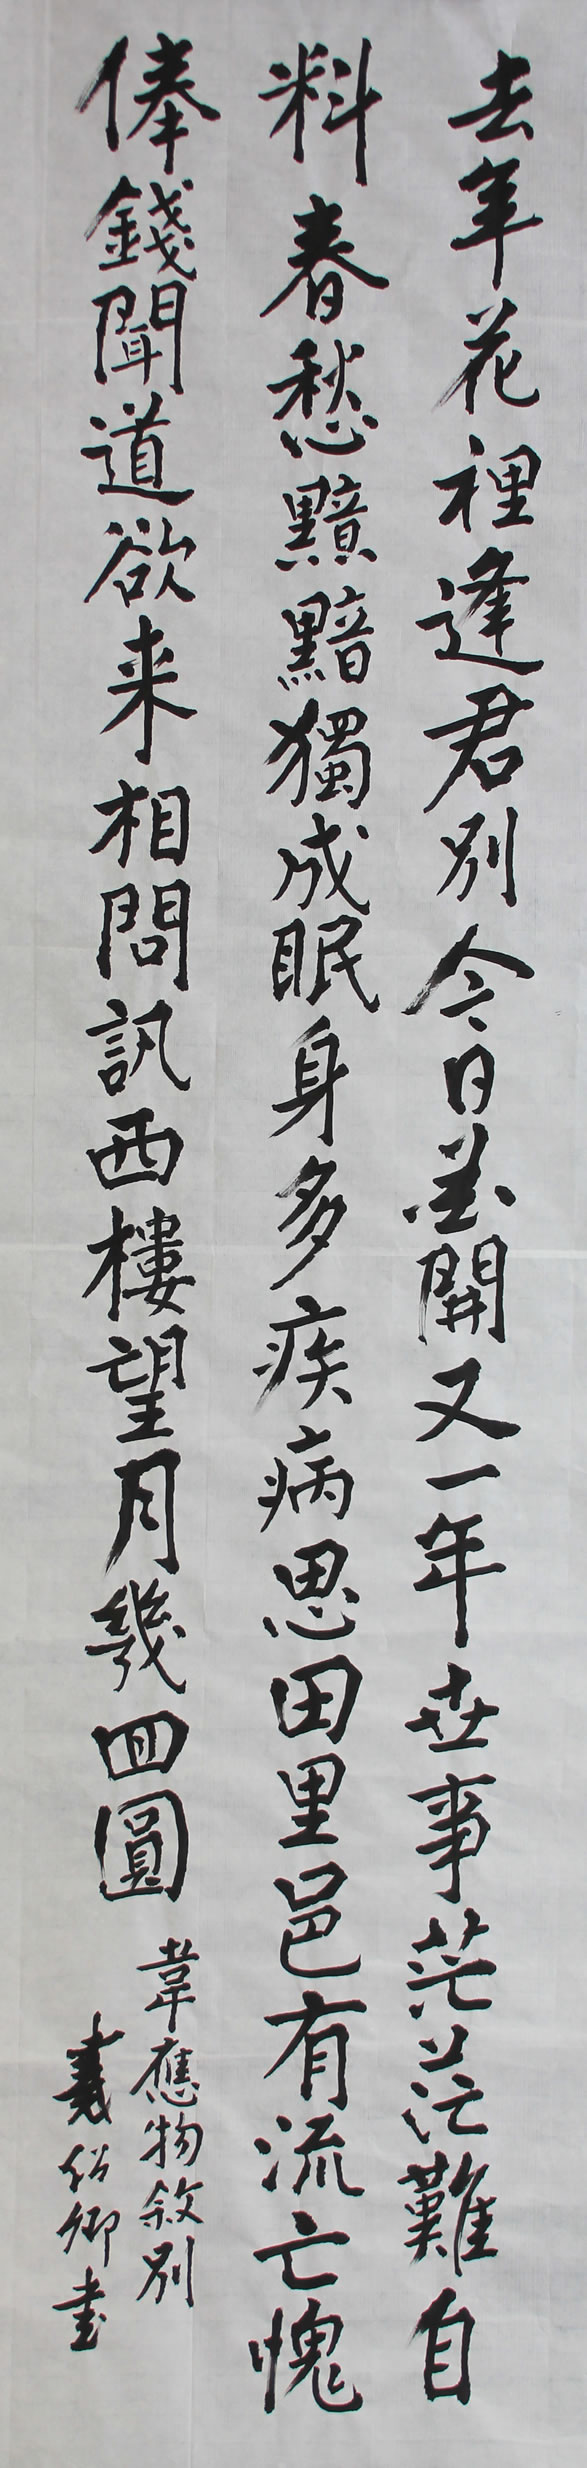 去年花裡逢君別今日花開又一年世事茫茫難自
料春愁黯黯獨成眠身多疾病思田里邑有流亡愧
俸錢聞道欲来相問訊西樓望月幾囬圓
韋應物敘別
戴紹卿書